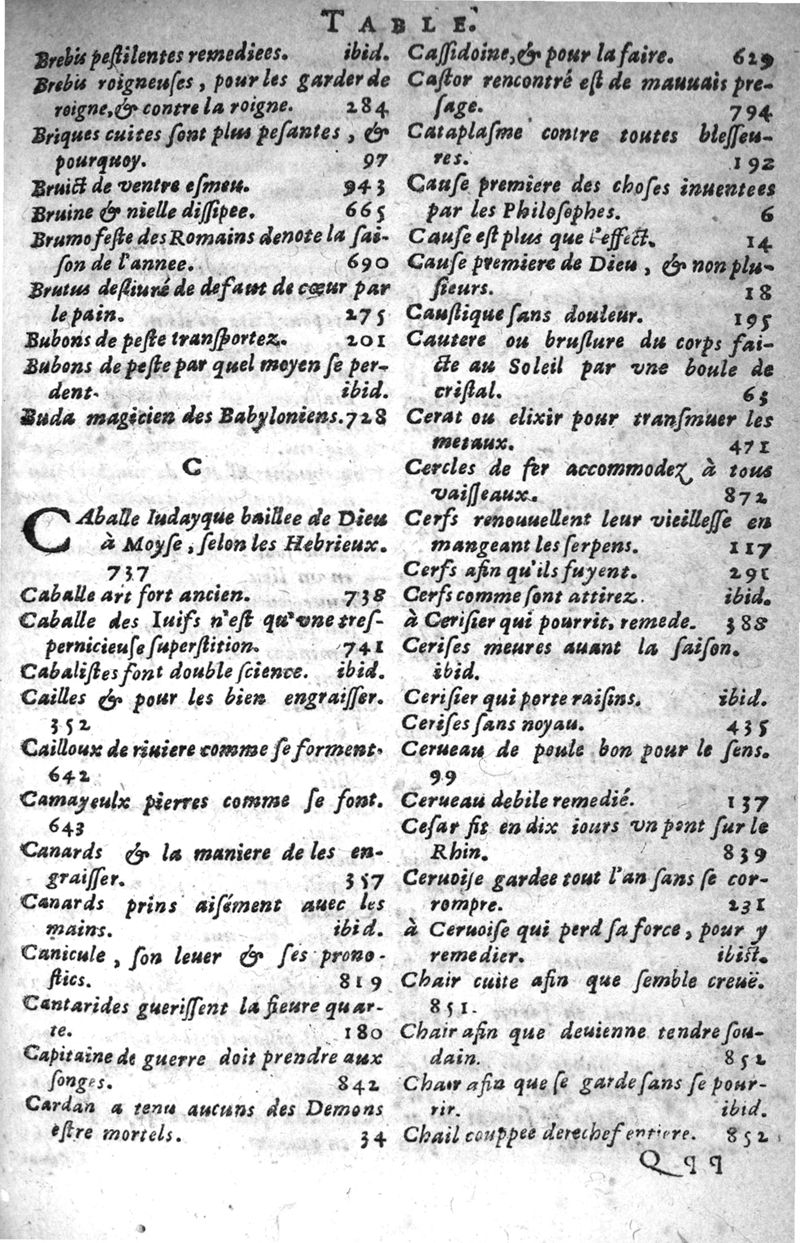 TABLE.
Brebis pestilentes remediees. ibid.
Brebis roigneuses, pour les garder de
roigne, & contre la roigne. 284
Briques cuites sont plus pesantes, &
pourquoy. 97
Bruict de ventre esmeu. 943
Bruine & nielle dissipee. 665
Brumo feste des Romains denote la sai-
son de l'annee. 690
Brutus destiuré de defaut de cœur par
le pain. 275
Bubons de peste transportez. 201
Bubons de peste par quel moyen se per-
dent. ibid.
Buda magicien des Babyloniens. 728
C
CAballe Iudayque baillee de Dieu
à Moyse, selon les Hebrieux.
737
Caballe art fort ancien. 738
Caballe des Iuifs n'est qu'vne tres-
pernicieuse superstition. 741
Cabalistes font double science. ibid.
Cailles & pour les bien engraisser.
352
Cailloux de riuiere comme se forment.
642
Camayeulx pierres comme se font.
643
Canards & la maniere de les en-
graisser. 357
Canards prins aisément auec les
mains. ibid.
Canicule, son leuer & ses prono-
stics. 819
Cantarides guerissent la fieure quar-
te. 180
Capitaine de guerre doit prendre aux
songes. 842
Cardan a tenu aucuns des Demons
estre mortels. 34
Cassidoine, & pour la faire. 629
Castor rencontré est de mauuais pre-
sage. 794
Cataplasme contre toutes blesseu-
res. 192
Cause premiere des choses inuentees
par les Philosophes. 6
Cause est plus que l'effect. 14
Cause premiere de Dieu, & non plu-
sieurs. 18
Caustique sans douleur. 195
Cautere ou brusture du corps fai-
cte au Soleil par vne boule de
cristal. 65
Cerat ou elixir pour transmuer les
metaux. 471
Cercles de fer accommodez à tous
vaisseaux. 872
Cerfs renouuellent leur vieillesse en
mangeant les serpens. 117
Cerfs afin qu'ils fuyent. 291
Cerfs comme sont attirez. ibid.
à Cerisier qui pourrit, remede. 388
Cerises meures auant la saison.
ibid.
Cerisier qui porte raisins. ibid.
Cerises sans noyau. 435
Cerueau de poule bon pour le sens.
99
Cerueau debile remedié. 137
Cesar fit en dix iours vn pont sur le
Rhin. 839
Ceruoise gardee tout l'an sans se cor-
rompre. 231
à Ceruoise qui perd sa force, pour y
remedier. ibid.
Chair cuite afin que semble creuë.
851.
Chair afin que deuienne tendre sou-
dain. 852
Chair afin que se garde sans se pour-
rir. ibid.
Chail couppee derechef entiere. 852
Qqq